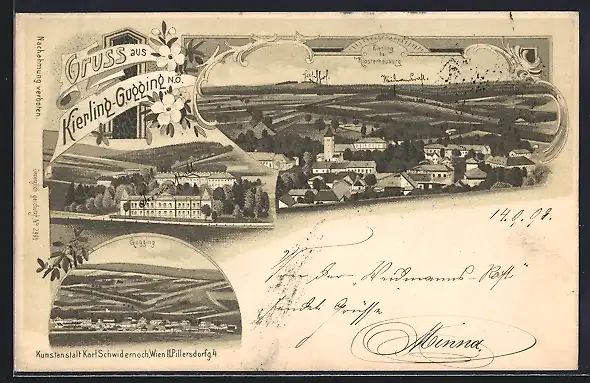 Gruss aus
Kierling-Gugging N.Ö.
Nachahmung verboten.
Kierling
bei
Klosterneuburg
Gugging
14.9.98.
Von der „Weidmanns-Rast"
sendet Grüsse
Minna
Kunstanstalt Karl Schwidernoch, Wien II. Pillersdorfg. 4